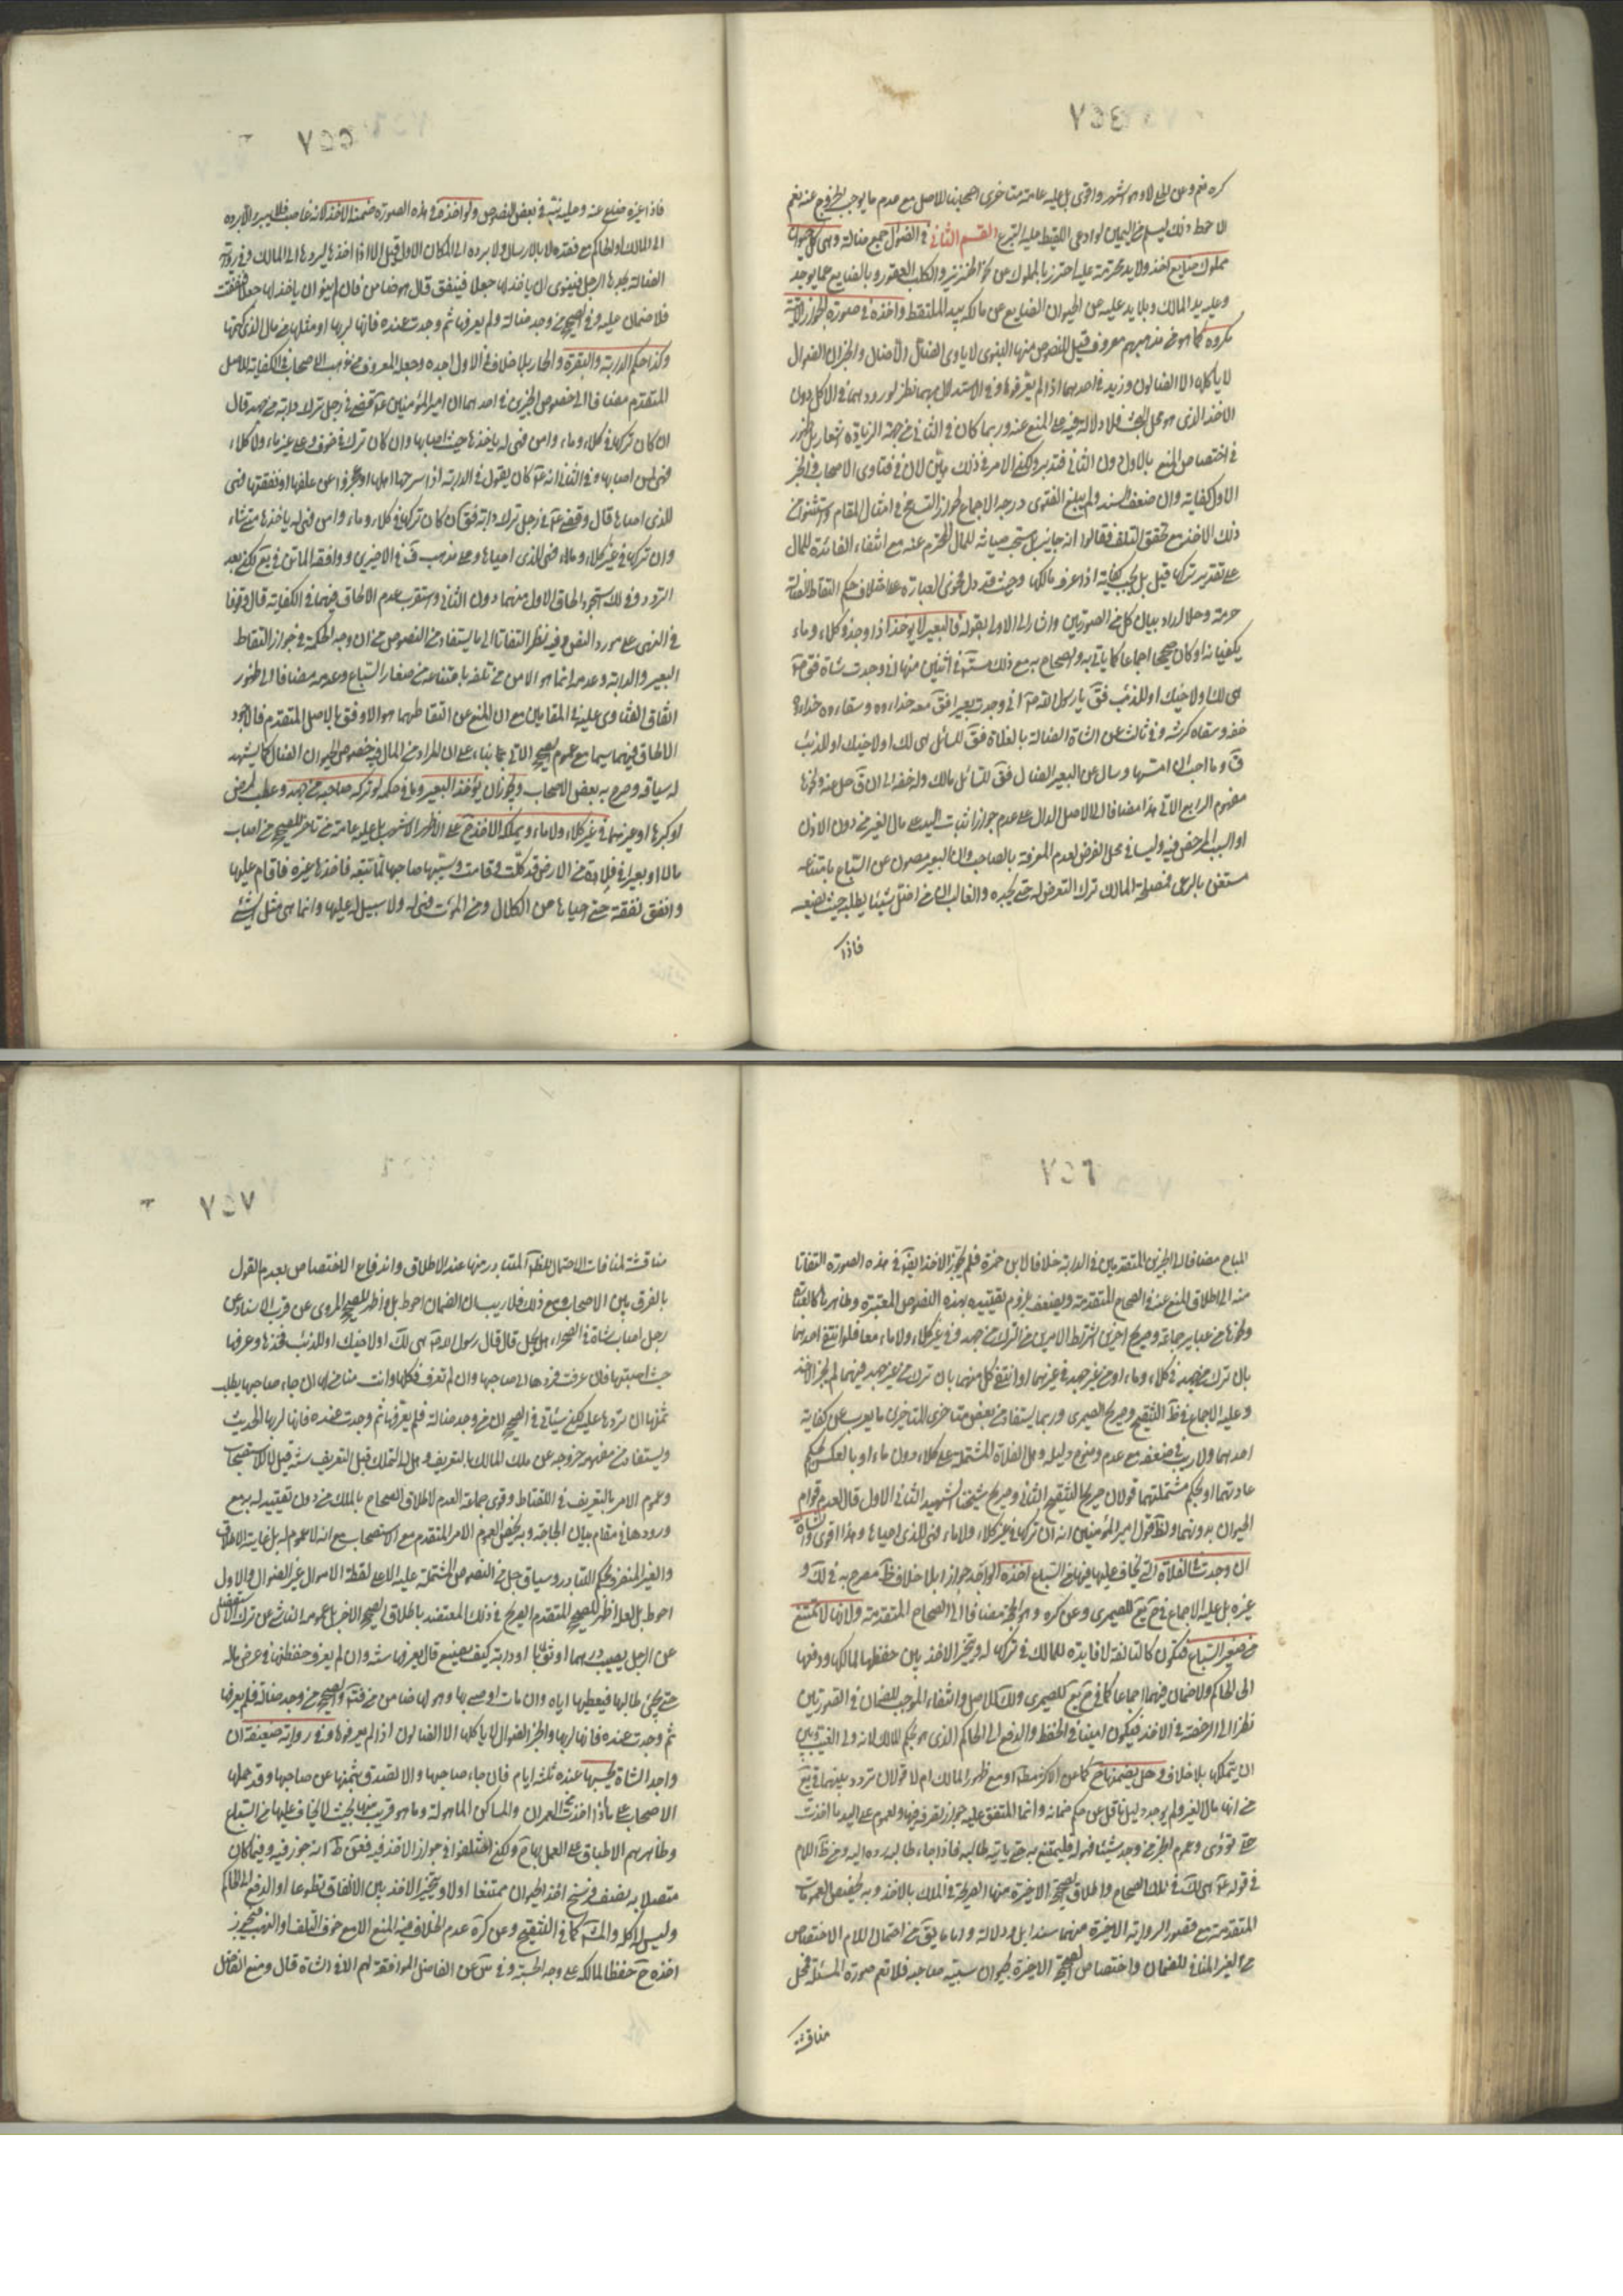 ٧٥٤
كره نعم وعن الخلاف وهو اشهر واقوى بل عليه عامة متاخرى اصحابنا للاصل مع عدم ما يوجب الخروج عنه نعم
الاحوط ذلك ليسلم من اليمين لو ادعى اللقيط عليه التبرع القسم الثانى فى الضوال جمع ضالة وهى كل حيوان
مملوك ضايع اخذ ولا يد محترمة عليه احترز بالمملوك عن نحو الخنزير والكلب العقور وبالضايع عما يوجد
وعليه يد المالك وبلا يد عليه عن الحيوان الضايع عن مالكه بيد الملتقط واخذه فى صورة الجواز
مكروه كما هو من مذهبهم معروف قيل للنصوص منها النبوى لا ياوى الضال الا الضال والخبران الضوال
لا ياكلها الا الضالون وزيد فى احدهما اذا لم يعرفوها وفى الاستدلال بهما نظر لورودهما فى الاكل دون
الاخذ الذى هو محل البحث فلا دلالة فيه على المنع عنه وربما كان فى الثانى من جهة الزيادة اشعار بل ظهور
فى اختصاص المنع بالاول دون الثانى فتدبر ولكن الامر فى ذلك هين لان فى فتاوى الاصحاب والخبر
الاول كفاية وان ضعف السند ولم يبلغ الفتوى درجة الاجماع لجواز التسامح فى امثال المقام واستثنوا من
ذلك الاخذ مع تحقق التلف فقالوا انه جايز بل مستحب صيانة للمال المحترم عنه مع انتفاء الفائدة للمالك
على تقدير تركها قيل بل يجب كفاية اذا عرف مالكها وحيث قد دل فحوى العبارة على اختلاف حكم التقاط الضالة
حرمة وحلا اراد بيان كل من الصورتين واشار الى الاولى بقوله فالبعير لا يؤخذ اذا وجد فى كلاء وماء
يكفيانه او كان صحيحا اجماعا كما ياتى به والصحاح به مع ذلك مستفيضة فى اثنين منها انى وجدت شاة فق صلى الله عليه وآله
هى لك او لاخيك او للذئب فق يا رسول الله انى وجدت بعيرا فق معه حذاؤه وسقاؤه حذاؤه
خفه وسقاؤه كرشه وفى ثالث عن الشاة الضالة بالفلاة فق للسائل هى لك او لاخيك او للذئب
ق وما احب ان امسها وسال عن البعير الضال فق للسائل مالك وله خفه الى ان ق خل عنه ونحوها
مفهوم الرابع الاتى هذا مضافا الى الاصل الدال على عدم جواز اثبات اليد على مال الغير من دون الاذن
او السبب المرخص فيه وليسا فى محل الفرض لعدم المعرفة بالصاحب ولان البعير مصون عن السباع بامتناعه
مستغن بالرعى فمصلحة المالك ترك التعرض له حتى يجده والغالب ان من اضل شيئا يطلبه حيث يضيعه
فاذا
٧٥٥
فاذا غيره ضلع عنه وعليه نبه فى بعض النصوص ولو اخذه فى هذه الصورة ضمنه الاخذ لانه غاصب فلا يبرء الا برده
الى المالك او الحاكم مع فقده لا بالارسال ولا برده الى المكان الاول قيل الا اذا اخذها ليردها الى المالك وفى رواية
الضالة يجدها الرجل فينوى ان ياخذ لها جعلا فينفق قال هو ضامن فان لم ينو ان ياخذ لها جعلا فنفقت
فلا ضمان عليه وفى الصحيح من وجد ضالة ولم يعرفها ثم وجدت عنده فانها لربها او مثلها من مال الذى كتمها
وكذا حكم الدابة والبقرة والحمار بلا خلاف فى الاول اجده وجعل المعروف من مذهب الاصحاب فى الكفاية للاصل
المتقدم مضافا الى خصوص الخبرين فى احدهما ان امير المؤمنين ع قضى فى رجل ترك دابة من جهد قال
ان كان تركها فى كلاء وماء وامن فهى له ياخذها حيث اصابها وان كان تركها فى خوف وعلى غير ماء ولا كلاء
فهى لمن اصابها وفى الثانى انه ع كان يقول فى الدابة اذا سرحها اهلها او عجزوا عن علفها او نفقتها فهى
للذى احياها قال وقضى ع فى رجل ترك دابة فق ان كان تركها فى كلاء وماء وامن فهى له ياخذها متى شاء
وان تركها فى غير كلاء وماء فهى للذى احياها وعلى مذهب ف فى الاخيرين ووافقه الماتن فى يع لكن بعد
التردد وفى لك استجود الحاق الاول منهما دون الثانى واستقرب عدم الالحاق فيهما فى الكفاية قال وقوفا
فى النهى على مورد النص وفيه نظر التفاتا الى ما يستفاد من النصوص من ان وجه الحكمة فى جواز التقاط
البعير والدابة وعدمه انما هو الامن من تلفه بامتناعه من صغار السباع وعدمه مضافا الى ظهور
اتفاق الفتاوى عليه فى المقامين مع ان المنع عن التقاطهما هو الاوفق بالاصل المتقدم فالاجود
الالحاق فيهما سيما مع عموم الصحيح الاتى بناء على ان المراد من المال فيه خصوص الحيوان الضال كما يشهد
له سياقه وصرح به بعض الاصحاب ويجوز ان يؤخذ البعير وما فى حكمه لو تركه صاحبه من جهد وعطب لمرض
او كبر او غيرهما فى غير كلاء ولا ماء ويملكه الاخذ ح على الاظهر الاشهر بل عليه عامة من تاخر للصحيح من اصاب
مالا او بعيرا فى فلاة من الارض قد كلت وقامت وسيبها صاحبها لما لم تتبعه فاخذها غيره فاقام عليها
وانفق نفقة حتى احياها من الكلال ومن الموت فهى له ولا سبيل له عليها وانما هى مثل الشئ
٧٥٦
المباح مضافا الى الخبرين المتقدمين فى الدابة خلافا لابن حمزة فلم يجوز الاخذ ايضا فى هذه الصورة التفاتا
منه الى اطلاق المنع عنه فى الصحاح المتقدمة ويضعف بلزوم تقييده بهذه النصوص المعتبرة وظاهرها كالعبارة
ونحوها من عباير جماعة وصريح اخرين اشتراط الامرين من الترك من جهد وفى غير كلاء ولا ماء معا فلو انتفى احدهما
بان ترك من جهد فى كلاء وماء او من غير جهد فى غيرهما او انتفى كل منهما بان ترك من غير جهد فيهما لم يجز الاخذ
وعليه الاجماع فى ظ التنقيح وصريح الصيمرى وربما يستفاد من بعض متاخرى المتاخرين ما يعرب عن كفاية
احدهما ولا ريب فى ضعفه مع عدم وضوح دليله وهل الفلاة المشتملة على كلاء دون ماء او بالعكس يحكم
عادتهما او بحكم مشتملتهما قولان صريح التنقيح الثانى وصريح شيخنا الشهيد الثانى الاول قال لعدم قوام
الحيوان بدونهما ولظ قول امير المؤمنين انه ان تركها فى غير كلاء ولا ماء فهى للذى احياها وهذا اقوى والشاة
ان وجدت فى الفلاة التى يخاف عليها فيها من السباع اخذها الواجد جوازا بلا خلاف ظ مصرح به فى لك و
غيره بل عليه الاجماع فى ح يع للصيمرى وعن كره وهو الحجة مضافا الى الصحاح المتقدمة ولانها لا تمتنع
من صغير السباع فتكون كالتالفة لا فايدة للمالك فى تركها له ويتخير الاخذ بين حفظها لمالكها ودفعها
الى الحاكم ولا ضمان فيهما اجماعا كما فى ح يع للصيمرى ولك للاصل وانتفاء الموجب للضمان فى الصورتين
نظرا الى الرخصة فى الاخذ فيكون امينا فى الحفظ والدفع الى الحاكم الذى هو بحكم المالك لانه ولى الغيب وبين
ان يتملكها بلا خلاف وهل يضمنها ح كما عن الاكثر مط او مع ظهور المالك ام لا قولان تردد بينهما فى يع
من انها مال الغير ولم يوجد دليل ناقل عن حكم ضمانه وانما المتفق عليه جواز تصرفه فيها ولعموم على اليد ما اخذت
حتى تؤدى وعموم الخبر من وجد شيئا فهو له فليتمتع به حتى ياتيه طالبه فاذا جاء طالبه رده اليه ومن ظ اللام
فى قوله ع هى لك فى تلك الصحاح واطلاق الصحيحة الاخيرة منها الصريحة فى الملك بالاخذ وبه يخصص العمومات
المتقدمة مع قصور الرواية الاخيرة منهما سندا بل ودلالة واما ما يق من احتمال اللام الاختصاص
ح الغير المنافى للضمان واختصاص الصحيحة الاخيرة بحيوان سيبه صاحبه فلا تعم صورة المسئلة فمحل
مناقشة
٧٥٧
مناقشة لمنافات الاحتمال للظ المتبادر منها عند الاطلاق واندفاع الاختصاص بعدم القول
بالفرق بين الاصحاب ومع ذلك فلا ريب ان الضمان احوط بل واظهر للصحيح المروى عن قرب الاسناد عن
رجل اصاب شاة فى الصحراء هل تحل قال قال رسول الله هى لك او لاخيك او للذئب فخذها وعرفها
حيث اصبتها فان عرفت فردها الى صاحبها وان لم تعرف فكلها وانت ضامن لها ان جاء صاحبها يطلب
ثمنها ان تردها عليه لكن سياتى فى الصحيح ان من وجد ضالة فلم يعرفها ثم وجدت عنده فانها لربها الحديث
ويستفاد من مفهومه خروجه عن ملك المالك بالتعريف وهل له التملك قبل التعريف سنة قيل لا للاستصحاب
وعموم الامر بالتعريف فى اللقطة وقوى جماعة العدم لاطلاق الصحاح بالملك من دون تقييد له به مع
ورودها فى مقام بيان الحاجة وبه يخص العموم الامر المتقدم مع الاستصحاب مع انه لا عموم له بل غايته الاطلاق
والغير المنصرف بحكم التبادر وسياق جل من النصوص المشتملة عليه الا الى لقطة الاموال غير الضوال والاول
احوط بل لعله اظهر للصحيح المتقدم الصريح فى ذلك المعتضد باطلاق الصحيح الاخر بل عمومه الناشى عن ترك الاستفصال
عن الرجل يصيب درهما او ثوبا او دابة كيف يصنع قال يعرفها سنة وان لم يعرف حفظها فى عرض ماله
حتى يجئ طالبها فيعطيها اياه وان مات اوصى بها وهو لها ضامن من وجد ضالة فلم يعرفها
ثم وجدت عنده فانها لربها والخبر الضوال لا ياكلها الا الضالون اذا لم يعرفوها وفى رواية ضعيفة ان
واجد الشاة يحبسها عنده ثلثة ايام فان جاء صاحبها والا تصدق بثمنها عن صاحبها وقد حملها
الاصحاب على ما اذا اخذت فى العمران والمساكن الماهولة وما هو قريب منها بحيث لا يخاف عليها من السباع
وظاهرهم الاطباق على العمل بها ح ولكن اختلفوا فى جواز الاخذ فيه فعن ط انه جوز فيه وفيما كان
متصلا به بنصف فرسخ اخذ الحيوان ممتنعا او لا ويتخير الاخذ بين الانفاق تطوعا او الدفع الى الحاكم
وليس له اكله والمش كما فى التنقيح وعن كره عدم الخلاف فيه المنع الا مع خوف التلف او النهب فيجوز
اخذه ح حفظا لمالكه على وجه الحسبة وفى س عن الفاضل الموافقة لهم الا فى الشاة قال ومنع الفاضل